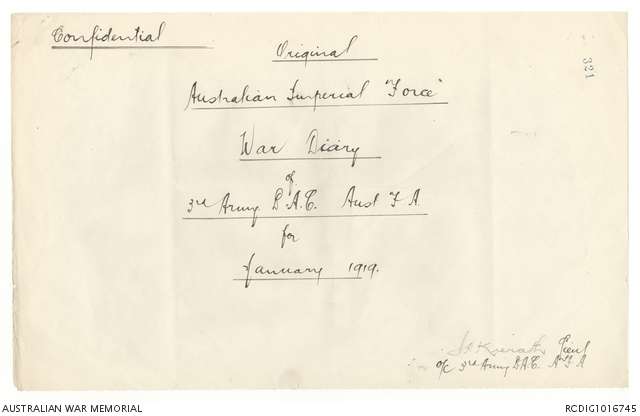 Confidential
Original
321
Australian Imperial "Force"
War Diary
of
3rd Army B.A.C. Aust F A.
for
January 1919.
Lieut
o/c 3rd Army B.A.C. A F A
AUSTRALIAN WAR MEMORIAL
RCDIG1016745